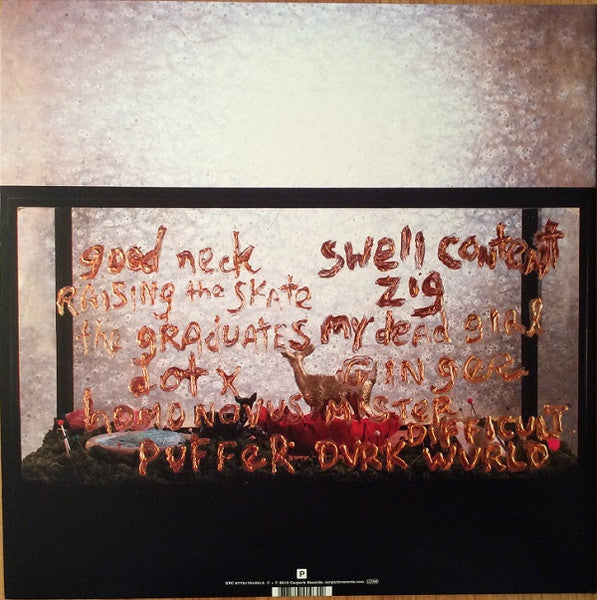 good neck
RAISING the SKATE
the GRADUATES
dot x
homonovus
PUFFER
swell content
zig
my dead girl
GINGER
MISTER
DIFFICULT
DVRK WVRLD
P
UPC © + ℗ 2015 Carpark Records, carparkrecords.com